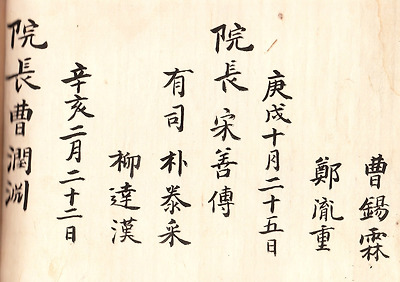 曹錫霖
鄭胤重
庚戌十月二十五日
院長宋善傅
有司朴泰采
柳達漢
辛亥二月二十二日
院長曹潤淵